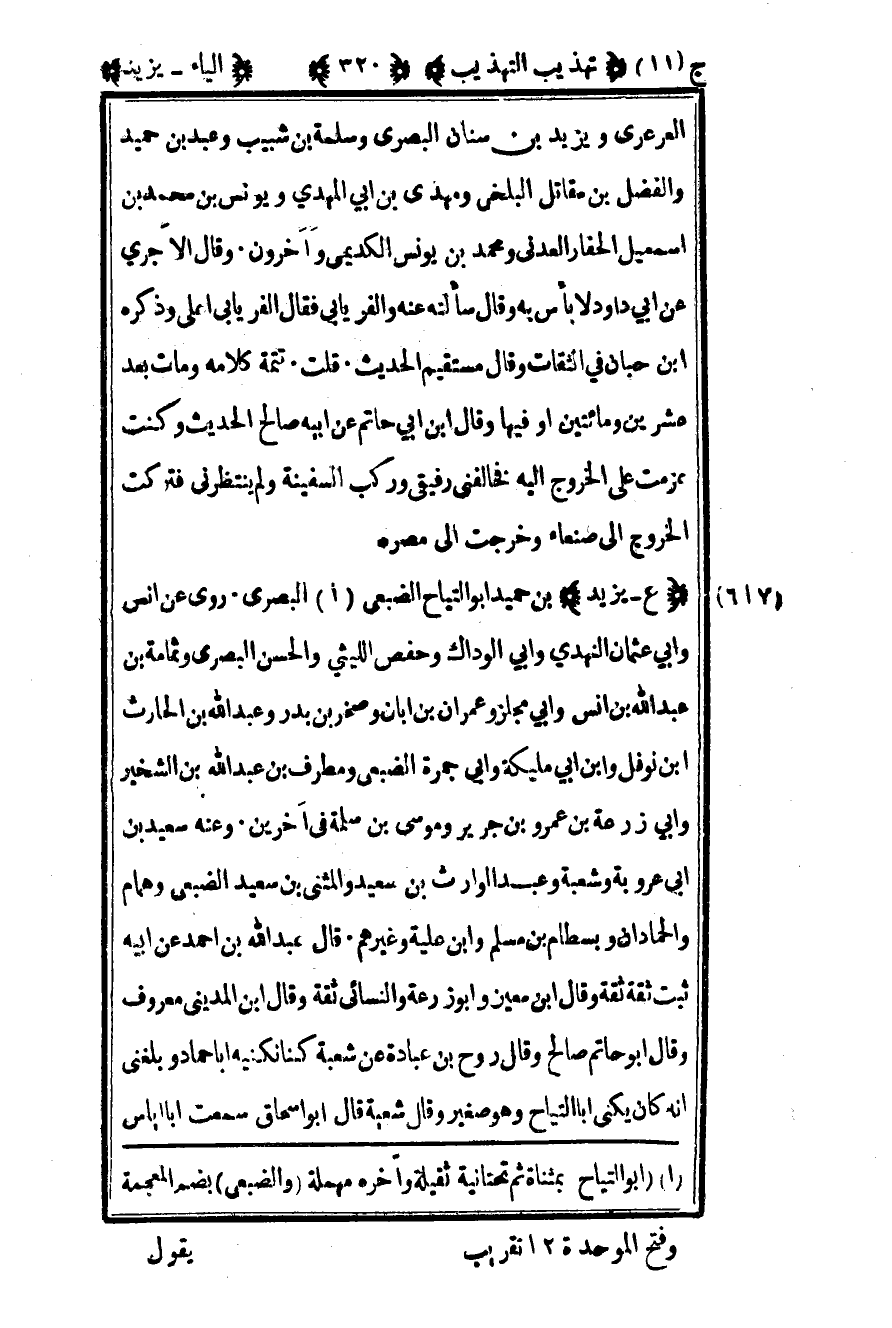 ج (١١) ﴿ تهذيب التهذيب ﴾ ﴿ ٣٢٠ ﴾ ﴿ الياء - يزيد ﴾
العرعرى و يزيد بن سنان البصرى وسلمة بن شبيب وعبد بن حميد
والفضل بن مقاتل البلخى ومهدى بن ابي المهدي و يونس بن محمد بن
اسمعيل الحفار العدنى ومحمد بن يونس الكديمى وآخرون · وقال الآجري
عن ابي داود لا بأس به وقال سألته عنه والفريابي فقال الفريابى اعلى وذكره
ابن حبان في الثقات وقال مستقيم الحديث · قلت · تتمة كلامه ومات بعد
عشرين ومائتين او فيها وقال ابن ابي حاتم عن ابيه صالح الحديث وكنت
عزمت على الخروج اليه فخالفنى رفيقى وركب السفينة ولم ينتظرنى فتركت
الخروج الى صنعاء وخرجت الى مصر ه
(٦١٧) ﴿ ع - يزيد ﴾ بن حميد ابو التياح الضبعى (١) البصرى · روى عن انس
وابي عثمان النهدي وابي الوداك وحفص الليثي والحسن البصرى وثمامة بن
عبد الله بن انس وابي مجلز وعمران بن ابان وصخر بن بدر وعبد الله بن الحارث
ابن نوفل وابن ابي مليكة وابي جمرة الضبعى ومطرف بن عبد الله بن الشخير
وابي زرعة بن عمرو بن جرير وموسى بن سلمة فى آخرين · وعنه سعيد بن
ابي عروبة وشعبة وعبد الوارث بن سعيد والمثنى بن سعيد الضبعى وهمام
والحمادان و بسطام بن مسلم وابن علية وغيرهم · قال عبد الله بن احمد عن ابيه
ثبت ثقة ثقة وقال ابن معين وابو زرعة والنسائى ثقة وقال ابن المدينى معروف
وقال ابو حاتم صالح وقال روح بن عبادة عن شعبة كنا نكنيه ابا حماد و بلغنى
انه كان يكنى ابا التياح وهو صغير وقال شعبة قال ابو اسحاق سمعت ابا اياس
(١) (ابو التياح) بمثناة ثم تحتانية ثقيلة وآخره مهملة (والضبعى) بضم المعجمة
وفتح الموحدة ١٢ تقريب
يقول